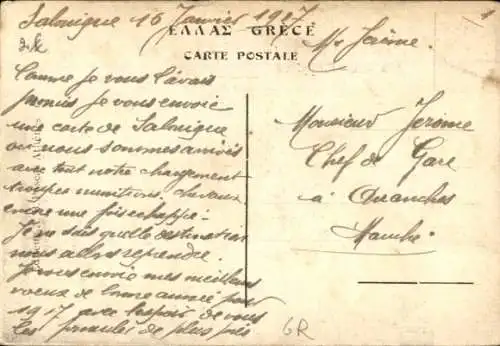 Salonique 16 Janvier 1917
ΕΛΛΑΣ GRÈCE
CARTE POSTALE
Mr Jérôme
Comme je vous l'avais
promis je vous envoie
une carte de Salonique
ou nous sommes arrivés
avec tout notre chargement
troupes munitions chevaux
encore une fois échappé.
Je ne sais quelle destination
nous allons reprendre.
Je vous envoie mes meilleurs
voeux de bonne année pour
1917 avec l'espoir de vous
les formuler de plus près
Monsieur Jerome
Chef de Gare
à Avranches
Manche
GR